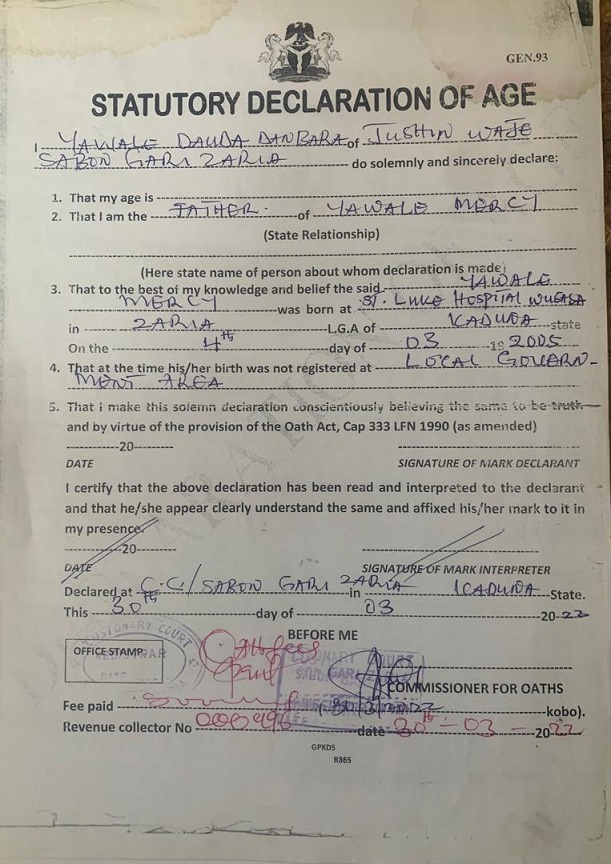 GEN.93
STATUTORY DECLARATION OF AGE
I YAWALE DAUDA DANBABA of JUSHIN WAJE
SABON GARI ZARIA do solemnly and sincerely declare:
1. That my age is
2. That I am the FATHER. of YAWALE MERCY
(State Relationship)
(Here state name of person about whom declaration is made)
3. That to the best of my knowledge and belief the said YAWALE
MERCY was born at ST. LUKE HOSPITAL WUSASA
in ZARIA L.G.A of KADUNA state
On the 4th day of 03 19 2005
4. That at the time his/her birth was not registered at LOCAL GOVERN-
MENT AREA
5. That I make this solemn declaration conscientiously believing the same to be truth
and by virtue of the provision of the Oath Act, Cap 333 LFN 1990 (as amended)
20
DATE SIGNATURE OF MARK DECLARANT
I certify that the above declaration has been read and interpreted to the declarant
and that he/she appear clearly understand the same and affixed his/her mark to it in
my presence.
20
DATE SIGNATURE OF MARK INTERPRETER
Declared at C.C/SABON GARI ZARIA in KADUNA State.
This 30th day of 03 2022
BEFORE ME
OFFICE STAMP
CUSTOMARY COURT
REGISTRAR
DATE
COMMISSIONER FOR OATHS
Fee paid kobo).
Revenue collector No date 30th - 03 - 2022
GPKDS
R865